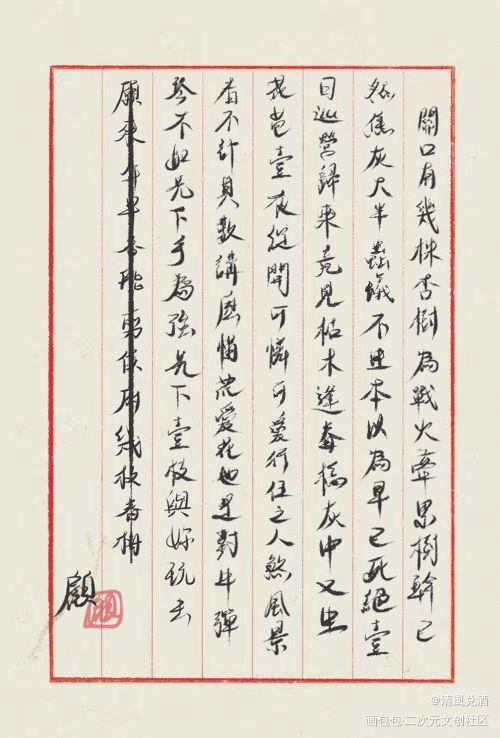 關口有幾株杏樹為戰火牽累樹幹已
然焦灰大半蟲蟻不進本以為早已死絕壹
日巡營歸來竟見枯木逢春槁灰中又生
花苞壹夜綻開可憐可愛行伍之人煞風景
者不計其數講願惜花愛花也是對牛彈
琴不如先下手為強先下壹枝與妳玩去
願來年早春能剪
幾枝春
顧
@清風兑酒
画包包·二次元文创社区